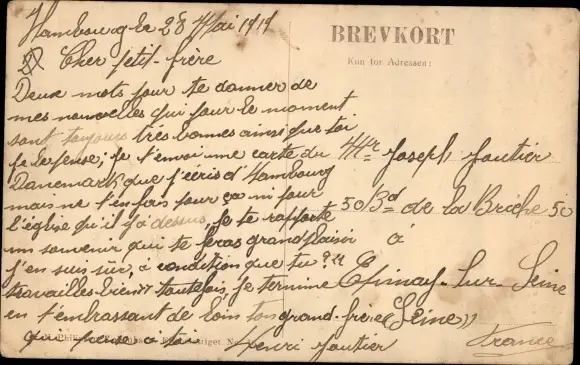 Hambourg le 28 Mai 1919
BREVKORT
Kun for Adressen:
Cher petit-frère
Deux mots pour te donner de
mes nouvelles qui pour le moment
sont toujours très bonnes ainsi que toi
je le pense; je t'envoi une carte du
Danemark que j'écris d'Hambourg
mais ne t'en fais pour ça ni pour
l'église qu'il y a dessus, je te rapporte
un souvenir qui te feras grand plaisir
j'en suis sûr, à condition que tu
travailles bien" toutefois, je termine
en t'embrassant de loin ton grand-frère
qui pense à toi
Henri Jautier
Mr Joseph Jautier
50 Bd de la Briche 50
à
Epinay-Sur-Seine
(Seine)
France